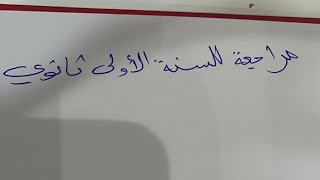 مراجعة للسنة الأولى ثانوي